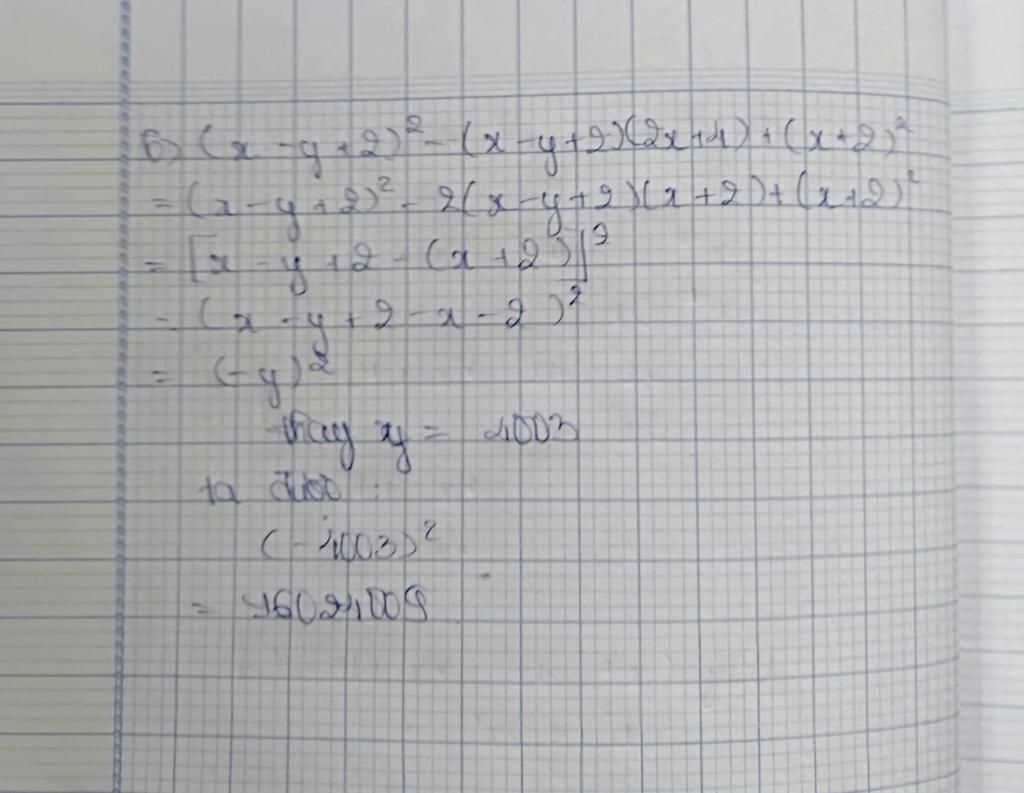 b) (x - y + 2)² - (x - y + 2)(2x + 4) + (x + 2)²
= (x - y + 2)² - 2(x - y + 2)(x + 2) + (x + 2)²
= [x - y + 2 - (x + 2)]²
= (x - y + 2 - x - 2)²
= (-y)²
thay y = 4003
ta được :
(-4003)²
= 16024009